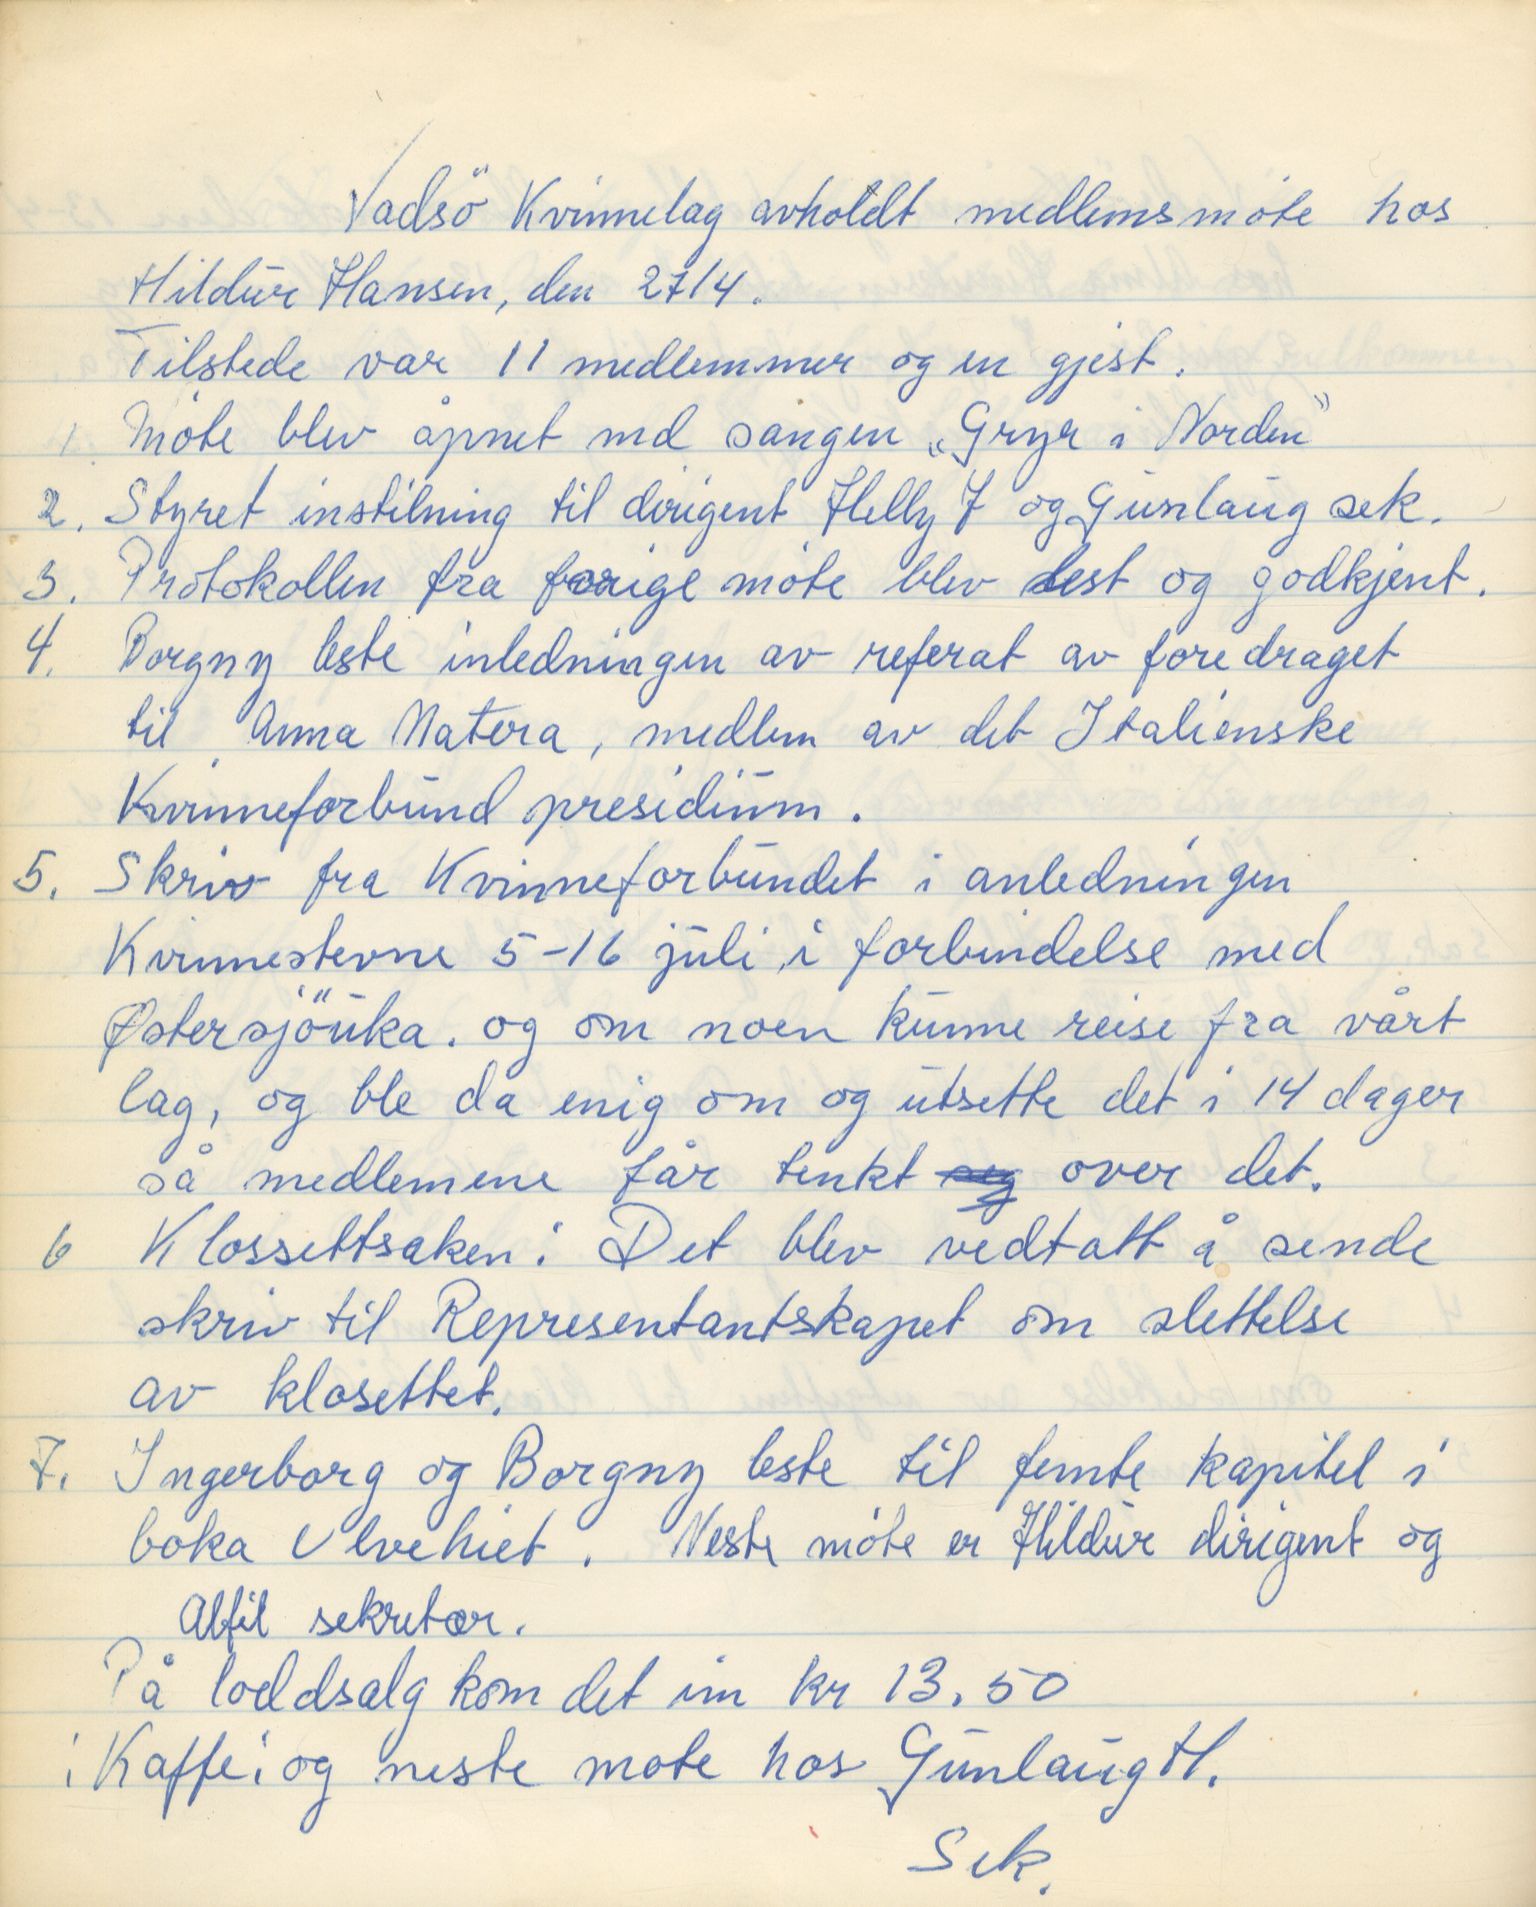 Vadsö Kvinnelag avholdt medlemsmöte hos
Hildur Hansen, den 27/4.
Tilstede var 11 medlemmer og en gjest.
1. Möte blev åpnet med sangen „Gryr i Norden"
2. Styret instilning til dirigent Helly J og Gunlaug sek.
3. Protokollen fra forige möte blev lest og godkjent.
4. Borgny leste inledningen av referat av foredraget
til Anna Matera, medlem av det Italienske
Kvinneforbund presidium.
5. Skriv fra Kvinneforbundet i anledningen
Kvinnestevne 5-16 juli, i forbindelse med
Østersjöuka. og om noen kunne reise fra vårt
lag, og ble da enig om og utsette det i 14 dager
så medlemene får tenkt seg over det.
6 Klossettsaken: Det blev vedtatt å sende
skriv til Representantskapet om slettelse
av klosettet.
7. Ingerborg og Borgny leste til femte kapitel i
boka Ulvehiet. Neste möte er Hildur dirigent og
Alfil sekretær.
På loddsalg kom det inn kr 13.50
i Kaffe i og neste möte hos Gunlaug H.
Sek.